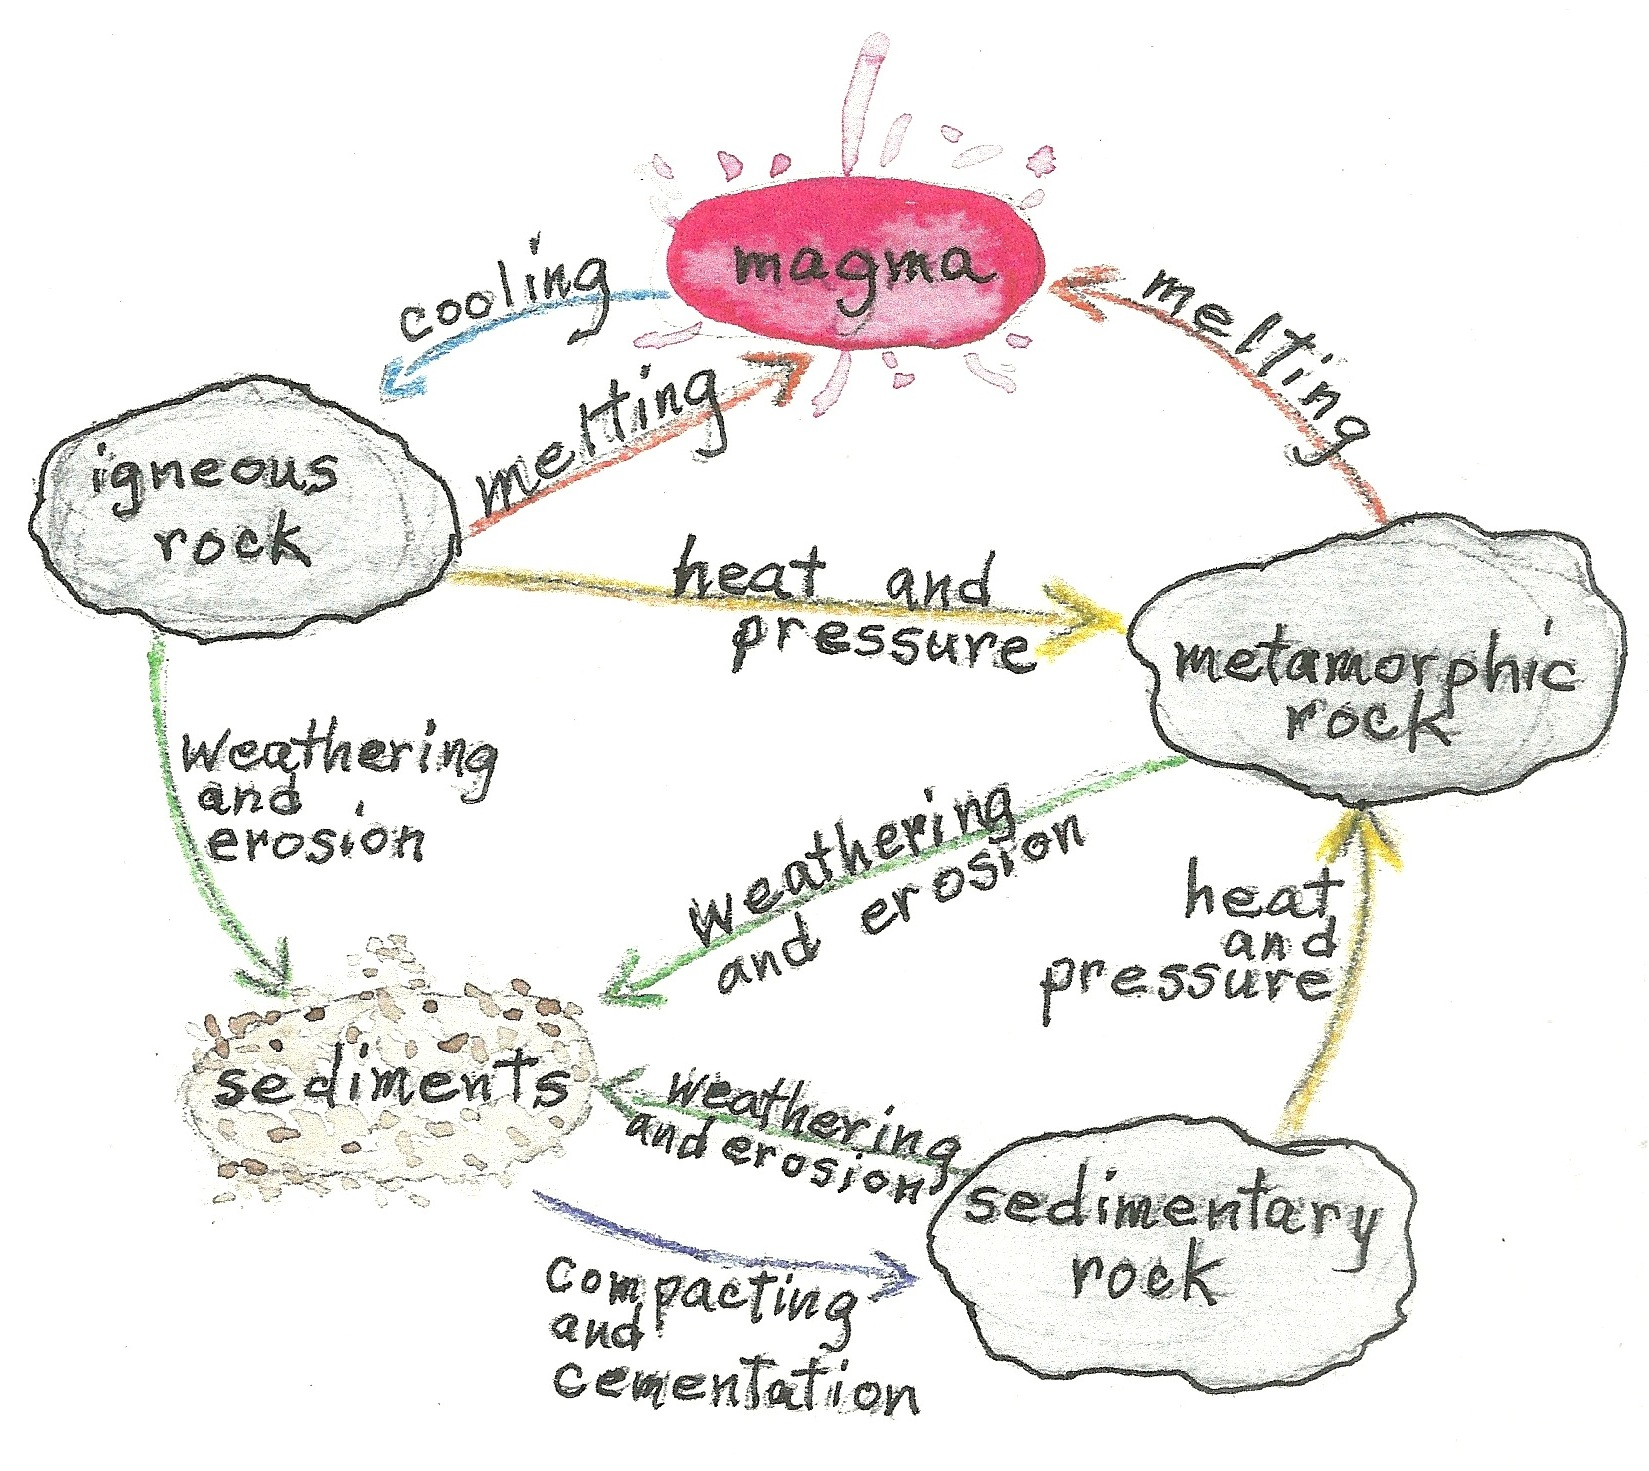 magma
cooling
melting
melting
igneous
rock
heat and
pressure
metamorphic
rock
weathering
and
erosion
weathering
and erosion
heat
and
pressure
sediments
weathering
and erosion
sedimentary
rock
compacting
and
cementation